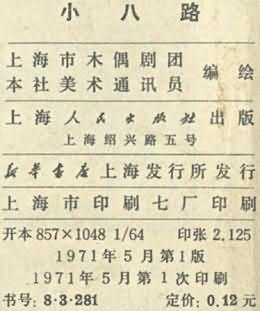 小八路
上海市木偶剧团
本社美术通讯员
编绘
上海人民出版社出版
上海绍兴路五号
新华书店上海发行所发行
上海市印刷七厂印刷
开本 857×1048 1/64 印张 2.125
1971年5月第1版
1971年5月第1次印刷
书号: 8·3·281 定价: 0.12元